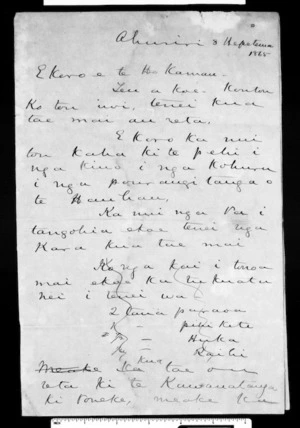 Ahuriri 8 Hepetema
1865
E koro e te Hakaman.
Tena koe. Koutou
Ko tou iwi, tenei kua
tae mai au reta.
E Koro ka nui
tou kaha ki te pehi i
nga kino i nga Kohuru
i nga pourangitanga o
te Hauhau,
Ka nui nga Pa i
tangohia e koe tenei nga
Kara kua tae mai
Ko nga kai i tonoa
mai e koe ka tukuatu
nei i tenei wa
2 tana puraoa
pihikete
Huka
Raihi
Meake Ka tae
reta ki te Kawanatanga
ki Poneke, meake